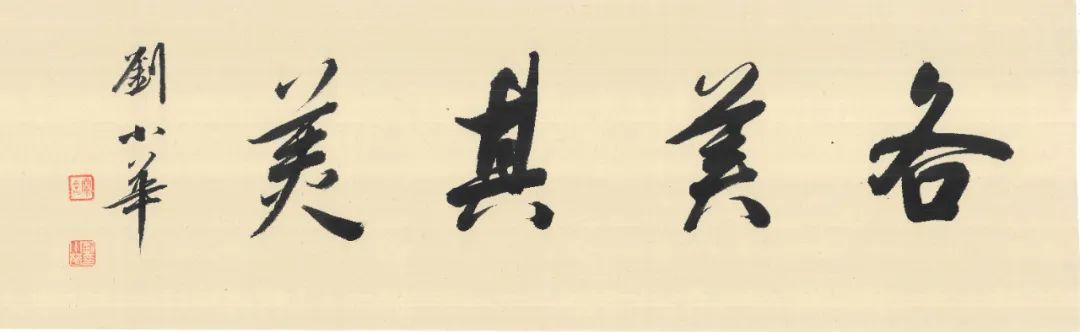 各美其美
劉小華